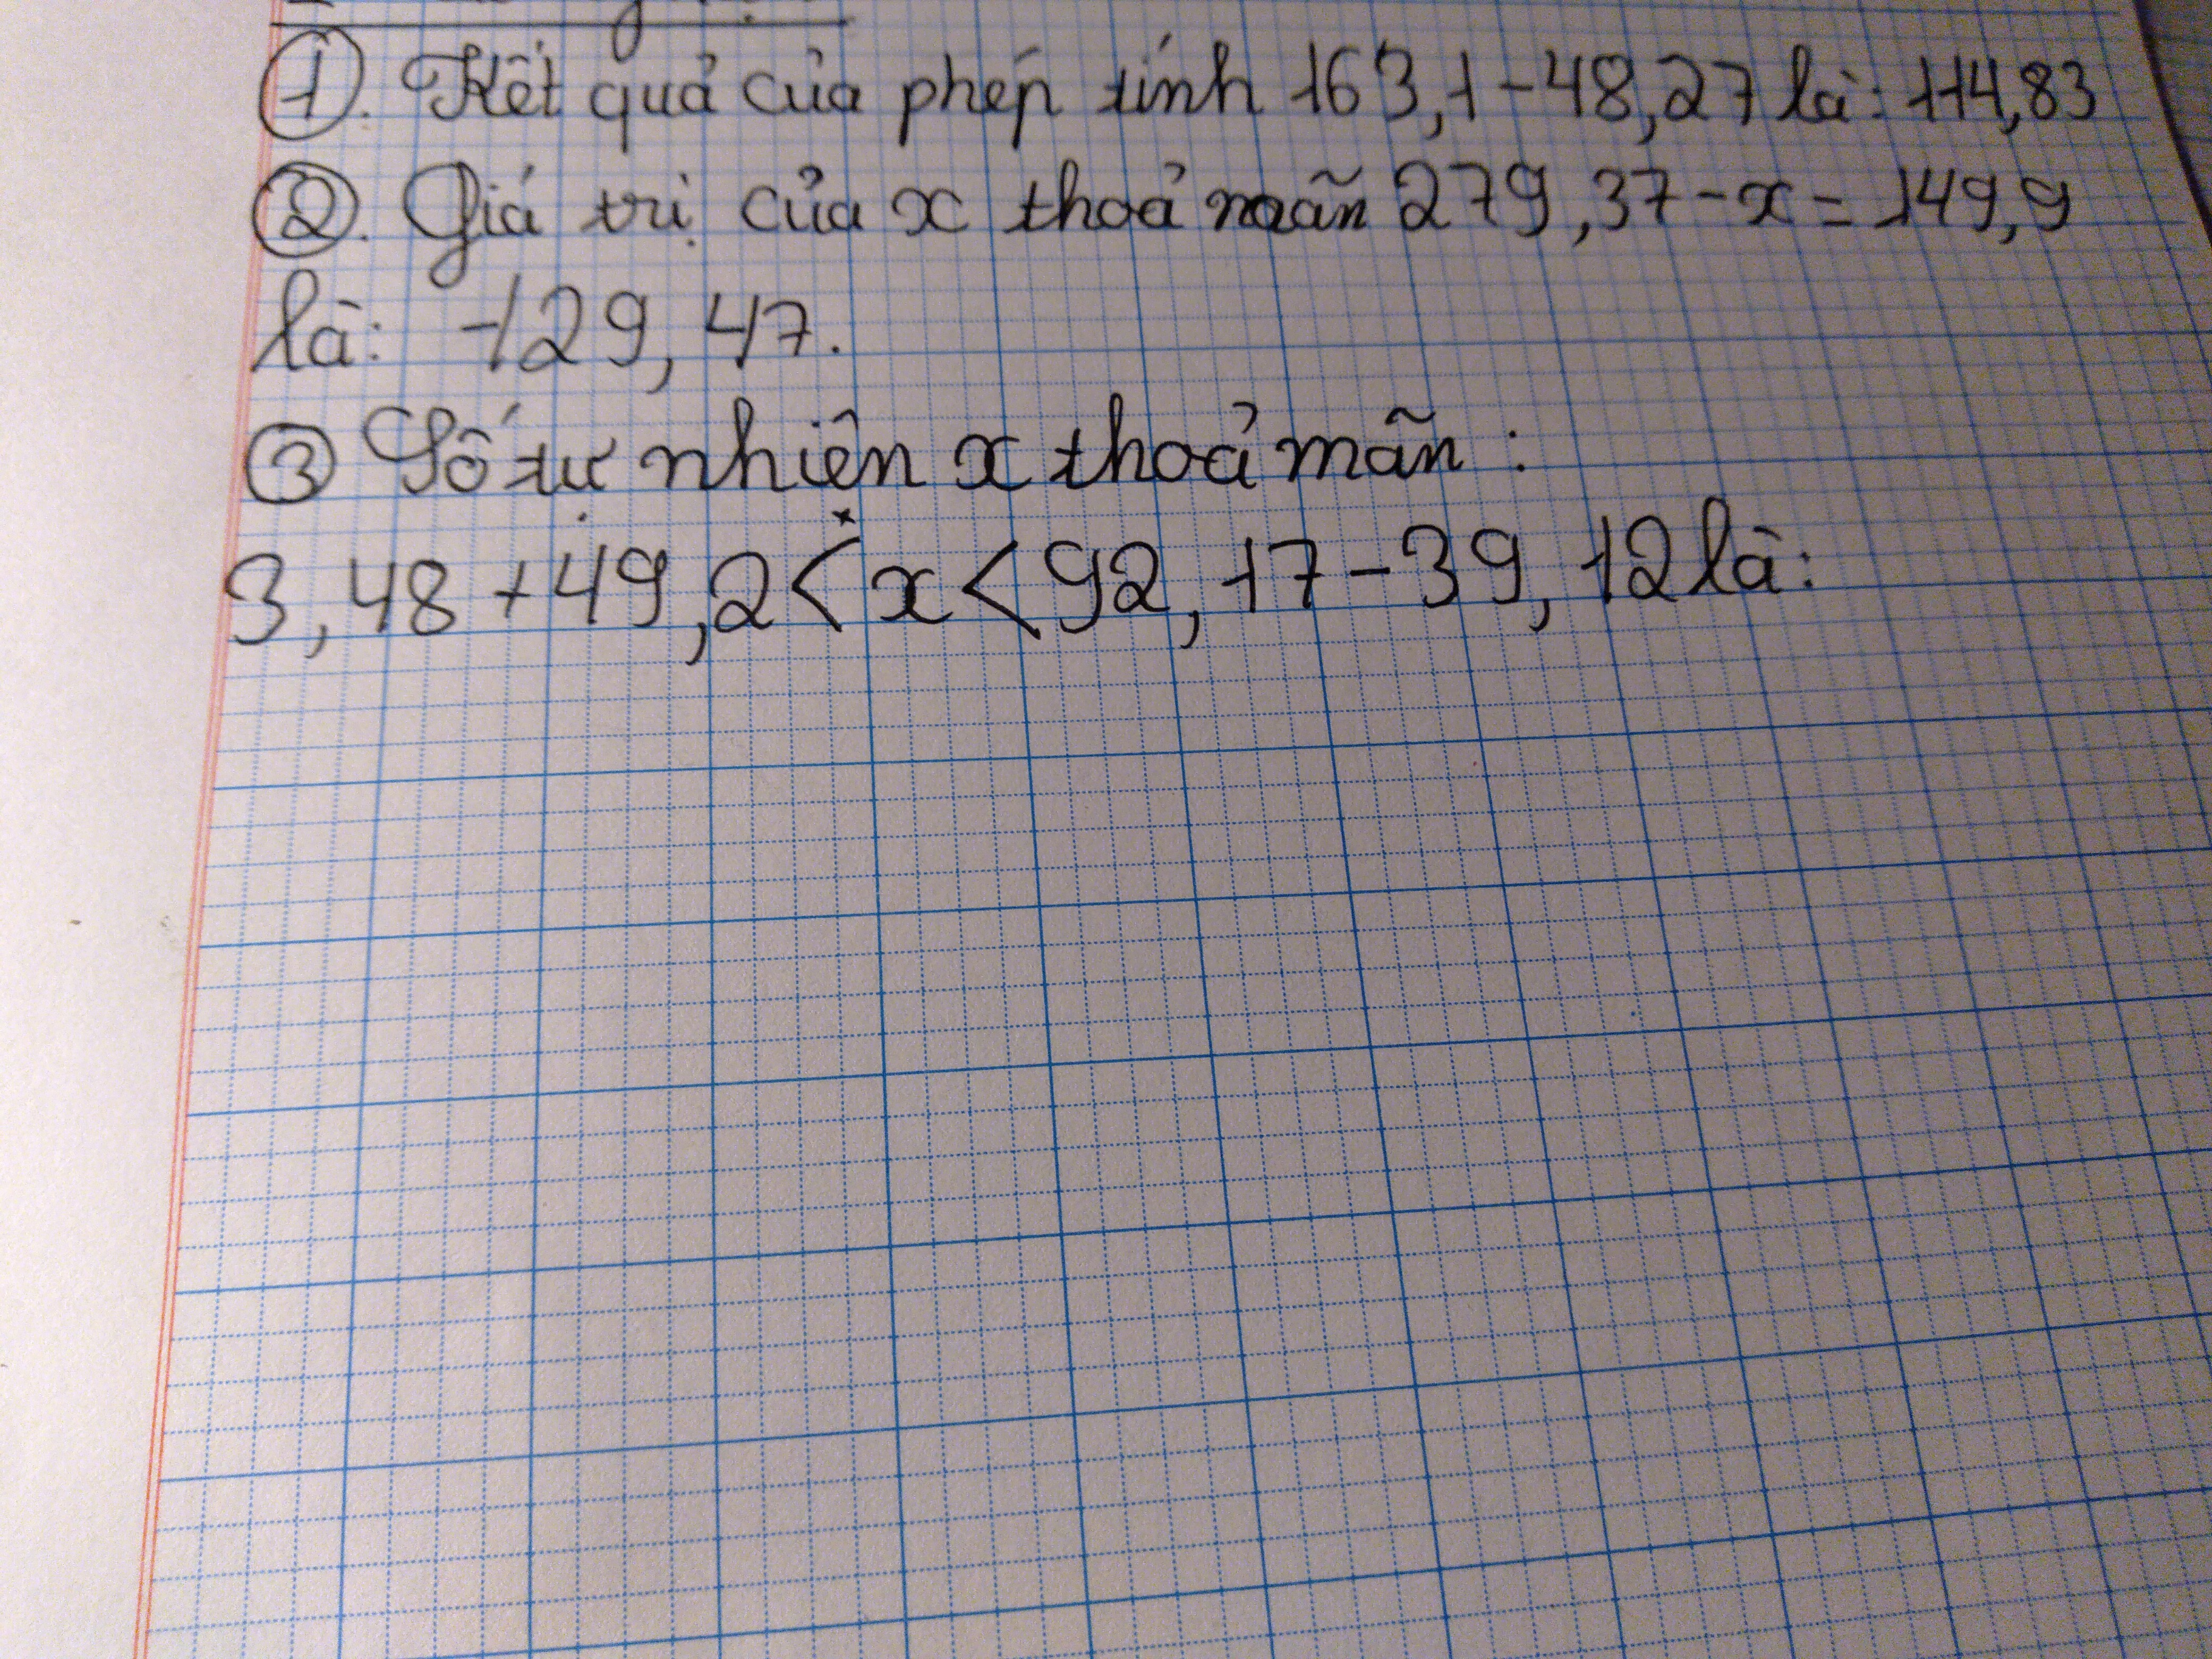 ①. Kết quả của phép tính 163,1-48,27 là: 114,83
②. Giá trị của x thoả mãn 279,37-x=149,9
là: 129,47.
③ Số tự nhiên x thoả mãn:
3,48+49,2<x<92,17-39,12 là: